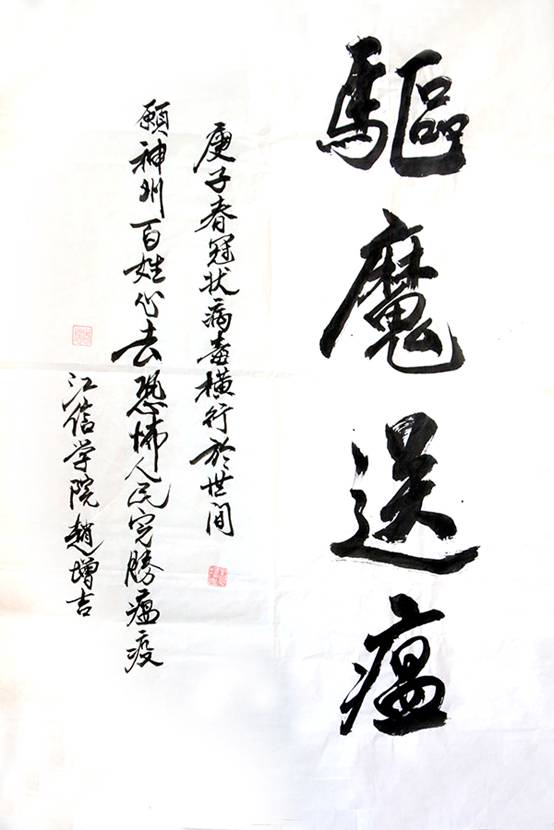 驅魔送瘟
庚子春冠状病毒橫行於世间
願神州百姓心去恐怖人民完勝瘟疫
江信学院趙增吉